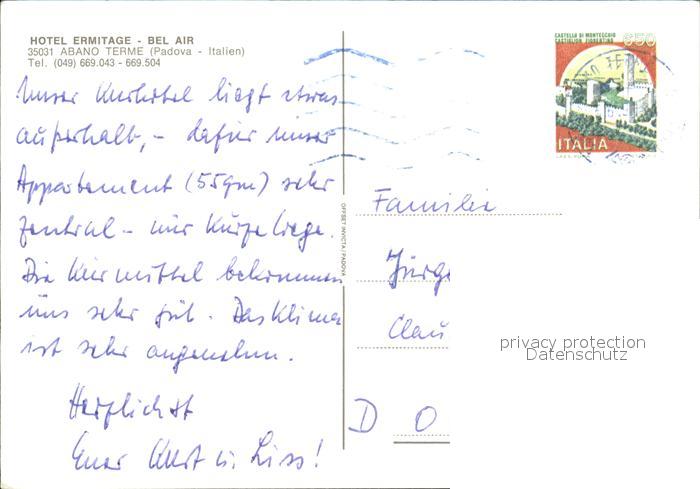 HOTEL ERMITAGE - BEL AIR
35031 ABANO TERME (Padova - Italien)
Tel. (049) 669.043 - 669.504
Unser Kurhotel liegt etwas
außerhalb, - dafür unser
Appartement (55qm) sehr
zentral - nur kurze Wege.
Die Kurmittel bekommen
uns sehr gut. Das Klima
ist sehr angenehm.
Herzlichst
Euer Kurt u. Liss!
OFFSET INVICTA / PADOVA
CASTELLO DI MONTECCHIO
CASTIGLION FIORENTINO
650
ITALIA
Familie
Jürg
Clau
D O
privacy protection
Datenschutz